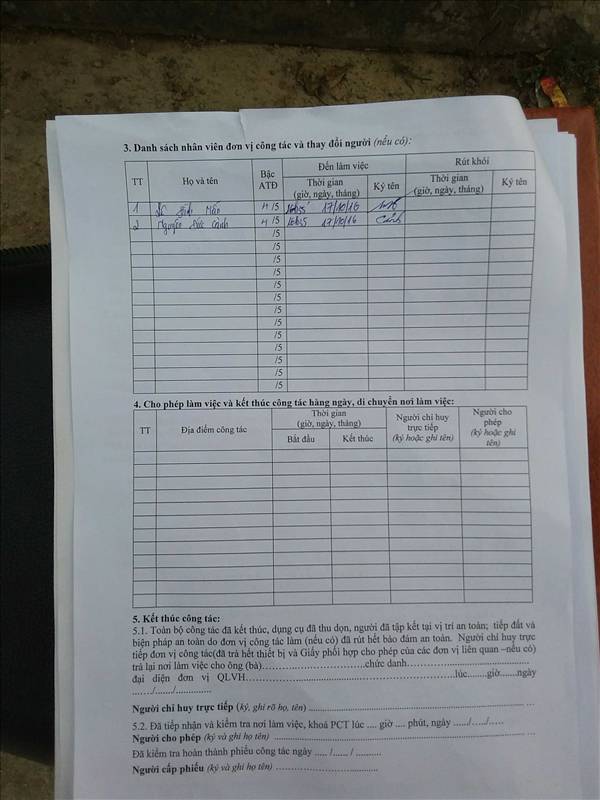 3. Danh sách nhân viên đơn vị công tác và thay đổi người (nếu có):
TT Họ và tên Bậc ATĐ Đến làm việc Rút khỏi
Thời gian (giờ, ngày, tháng) Ký tên Thời gian (giờ, ngày, tháng) Ký tên
1 Mẫn 4 /5 17/10/16
2 Nguyễn Đức Cảnh 4 /5 17/10/16 Cảnh
/5
/5
/5
/5
/5
/5
/5
/5
/5
/5
/5
/5
/5
4. Cho phép làm việc và kết thúc công tác hàng ngày, di chuyển nơi làm việc:
TT Địa điểm công tác Thời gian (giờ, ngày, tháng) Người chỉ huy trực tiếp (ký hoặc ghi tên) Người cho phép (ký hoặc ghi tên)
Bắt đầu Kết thúc
5. Kết thúc công tác:
5.1. Toàn bộ công tác đã kết thúc, dụng cụ đã thu dọn, người đã tập kết tại vị trí an toàn; tiếp đất và
biện pháp an toàn do đơn vị công tác làm (nếu có) đã rút hết bảo đảm an toàn. Người chỉ huy trực
tiếp đơn vị công tác(đã trả hết thiết bị và Giấy phối hợp cho phép của các đơn vị liên quan –nếu có)
trả lại nơi làm việc cho ông (bà)..........................chức danh..............................
đại diện đơn vị QLVH..................................................lúc.......giờ......ngày
......./......./..............
Người chỉ huy trực tiếp (ký, ghi rõ họ, tên) ..................................................
5.2. Đã tiếp nhận và kiểm tra nơi làm việc, khoá PCT lúc .... giờ .... phút, ngày ...../...../.....
Người cho phép (ký và ghi họ tên) ..................................................
Đã kiểm tra hoàn thành phiếu công tác ngày ..... /...... / ..........
Người cấp phiếu (ký và ghi họ tên) ..............................